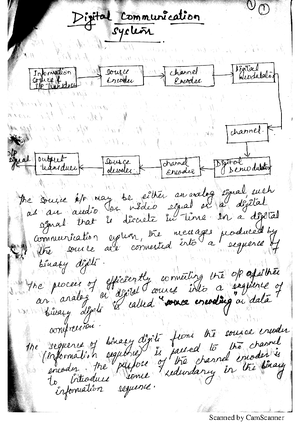 1
Digital Communication
System
Information source & I/P transducer
Source Encoder
Channel Encoder
Digital Modulator
channel
Digital Demodulator
channel Encoder
Source decoder
Output transducer
O/P signal
The source i/p may be either an analog signal such
as an audio or video signal or a digital
signal that is discrete in time. In a digital
communication system, the messages produced by
the source are converted into a sequence of
binary digits.
The process of efficiently converting the o/p of either
an analog or digital source into a sequence of
binary digits is called "source encoding or data
compression.
The sequence of binary digits from the source encoder
(Information sequence) is passed to the channel
encoder. The purpose of the channel encoder is
to introduce some redundancy in the binary
information sequence.
Scanned by CamScanner